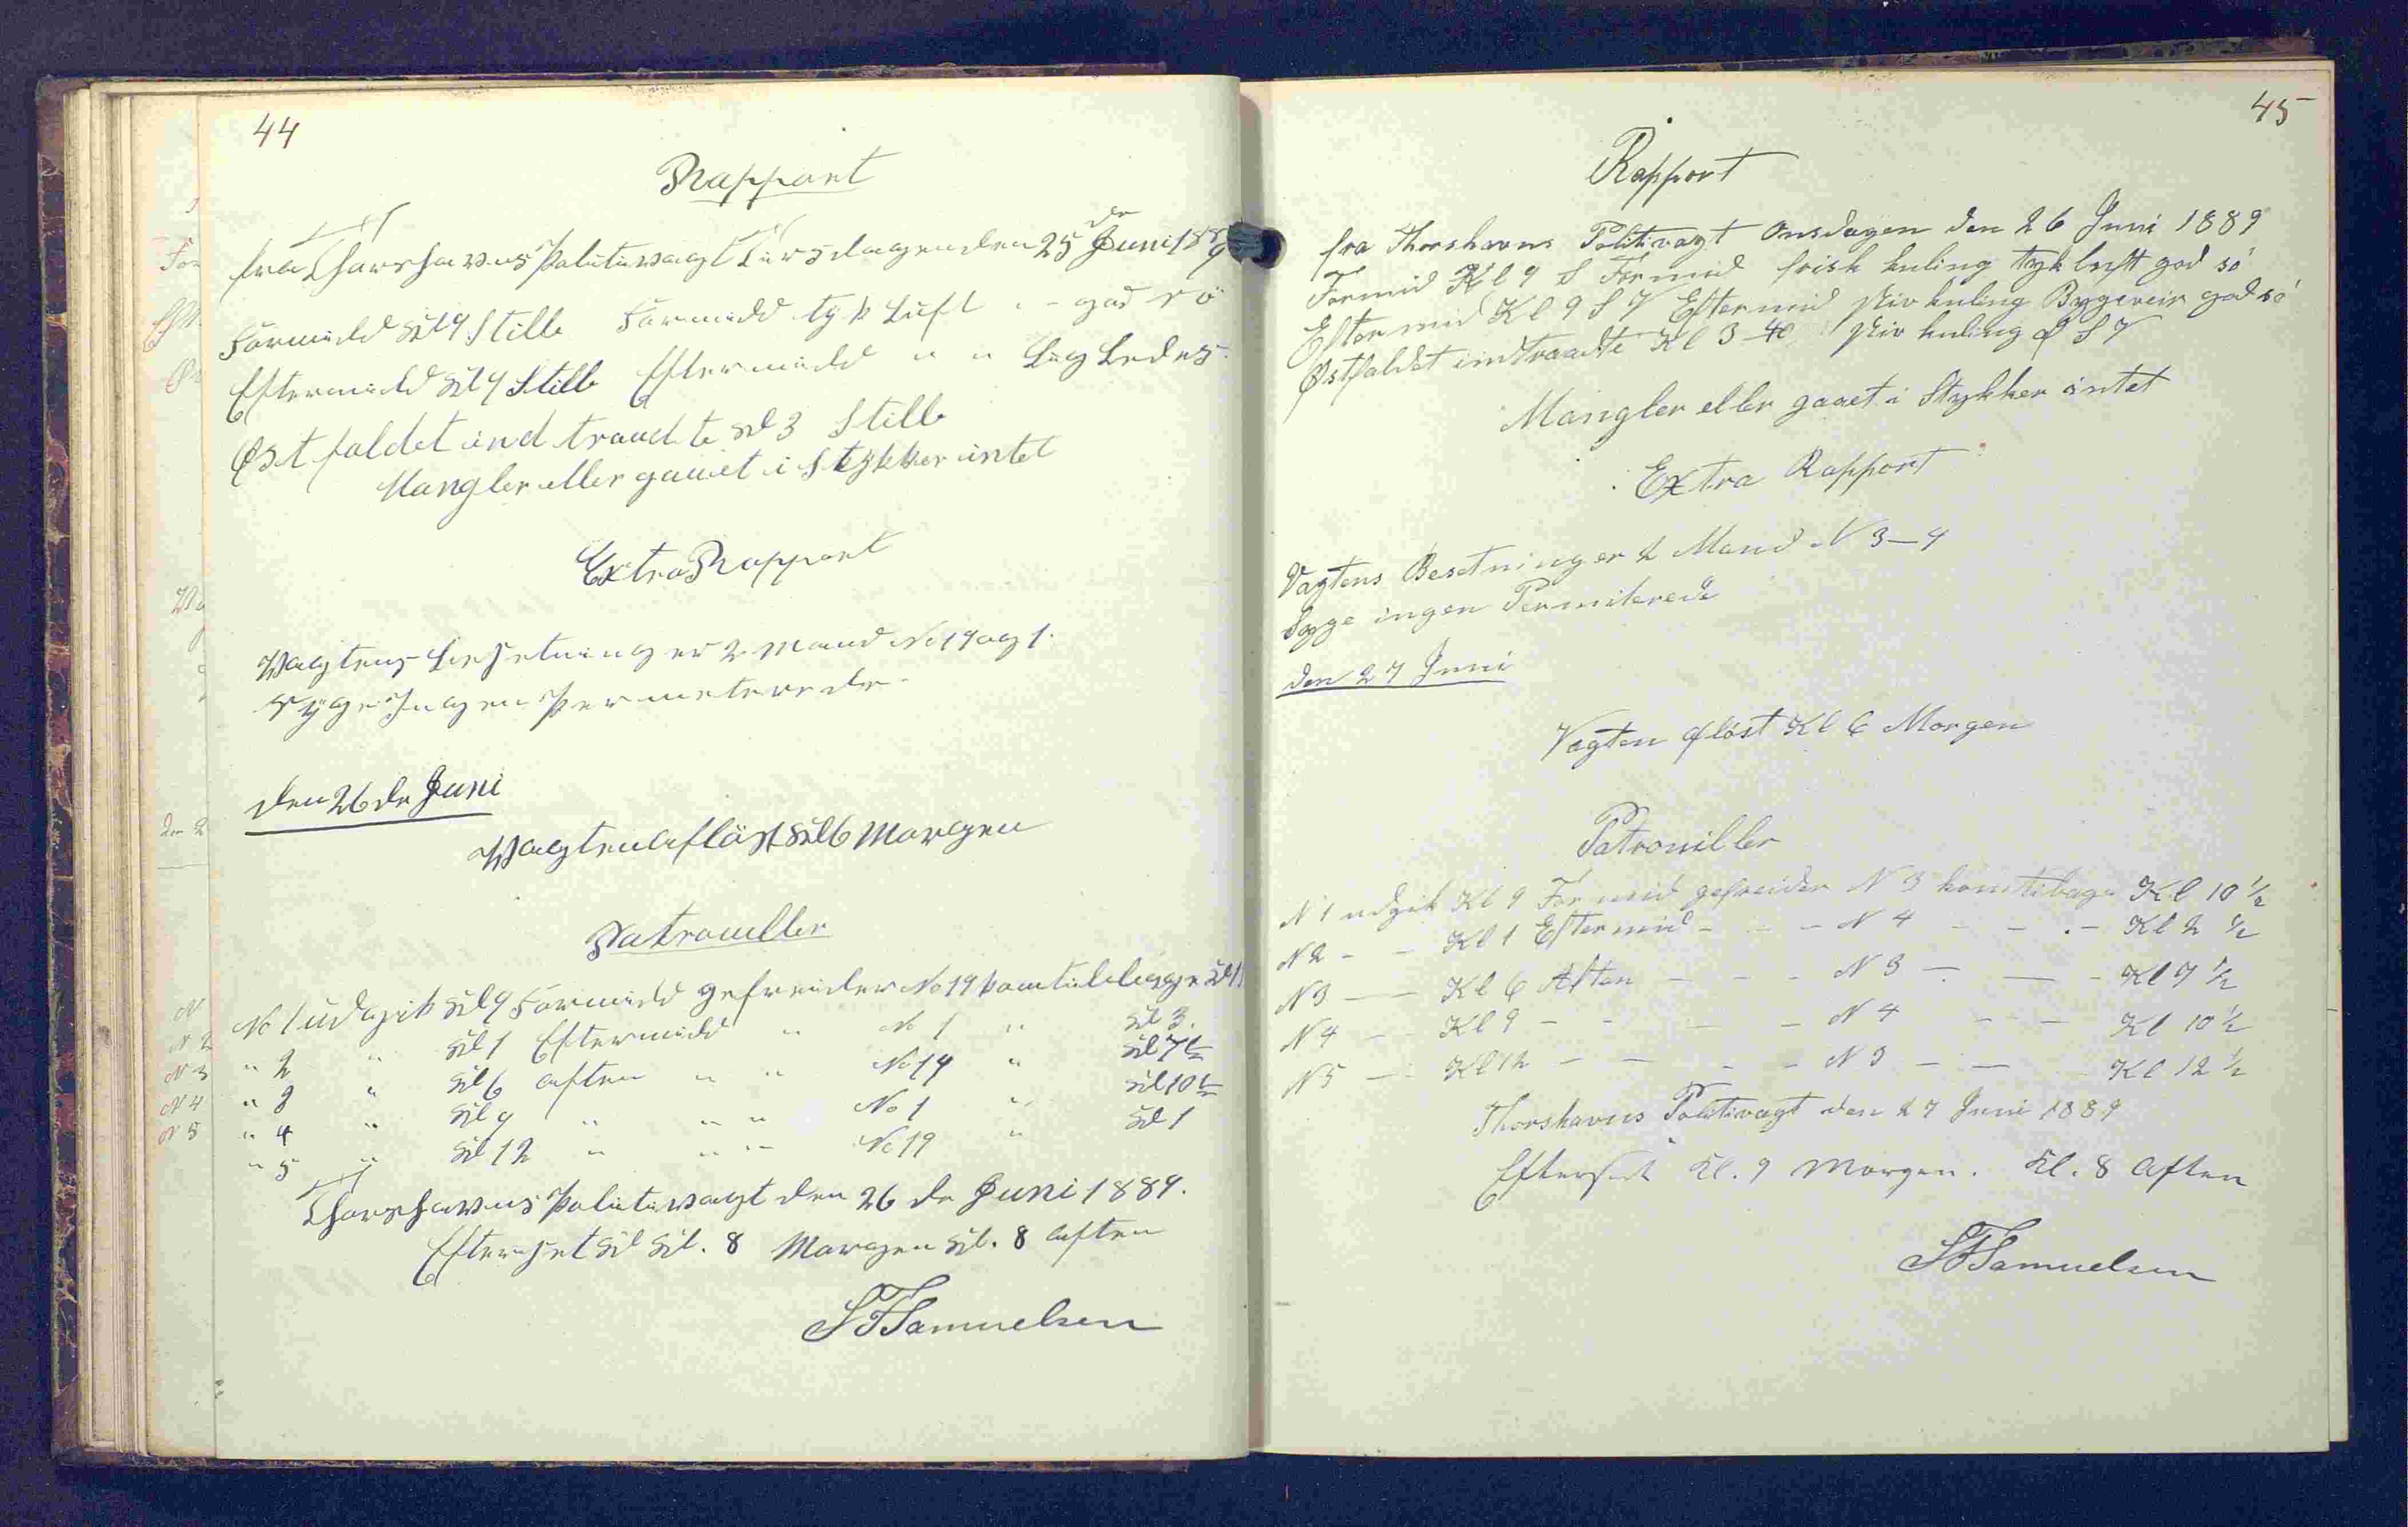 44
Rapport
fra Thorshavns Politivagt Tirsdagen den 25 de Juni 1889
Formidd Kl 9 Stille Formidd tyk Luft " - god sö
Eftermidd Kl 9 Stille Eftermidd " "
Østfaldet indtraadte Kl 3 Stille
Mangler eller gauet i Stykker intet
Extra Rapport
Vagtens Besetning er 2 Mand No 19 og 1.
Syge Ingen Permeterede.
den 26 de Juni
Vagten aflöst Kl 6 Morgen
Patrouller
No 1 udgik Kl 9 Formidd gefreider No 19 kom tilbage Kl 11
" 2 " Kl 1 Eftermidd " No 1 " Kl 3.
" 3 " Kl 6 Aften " " No 19 " Kl 7½
" 4 " Kl 9 " " " No 1 " Kl 10½
" 5 " Kl 12 " " " No 19 " Kl 1
Thorshavns Politivagt den 26 de Juni 1889.
Efterset Kl. 8 Morgen Kl. 8 Aften
SFSamuelsen
45
Rapport
fra Thorshavns Politivagt Onsdagen den 26 Juni 1889
Formid Kl 9 S Formid frisk kuling tyk luft god sö
Eftermid Kl 9 S V Eftermid stiv kuling Bygeveir god sö
Østfaldet indtraadte Kl 3-40 stiv kuling af S V
Mangler eller gaaet i Stykker intet
Extra Rapport
Vagtens Besetning er 2 Mand N 3-4
Syge ingen Permiterede
den 27 Juni
Vagten aflöst Kl 6 Morgen
Patrouiller
N 1 udgik Kl 9 Formid gefreider N 3 kom tibage Kl 10 ½
N 2 - - Kl 1 Eftermid - - - N 4 - - - Kl 2 ½
N 3 - - Kl 6 Aften - - - N 3 - - - Kl 7 ½
N 4 - - Kl 9 - - - - N 4 - - - Kl 10 ½
N 5 - - Kl 12 - - - - N 3 - - Kl 12 ½
Thorshavns Politivagt den 27 Juni 1889
Efterset Kl. 9 Morgen. Kl. 8 Aften
SFSamuelsen